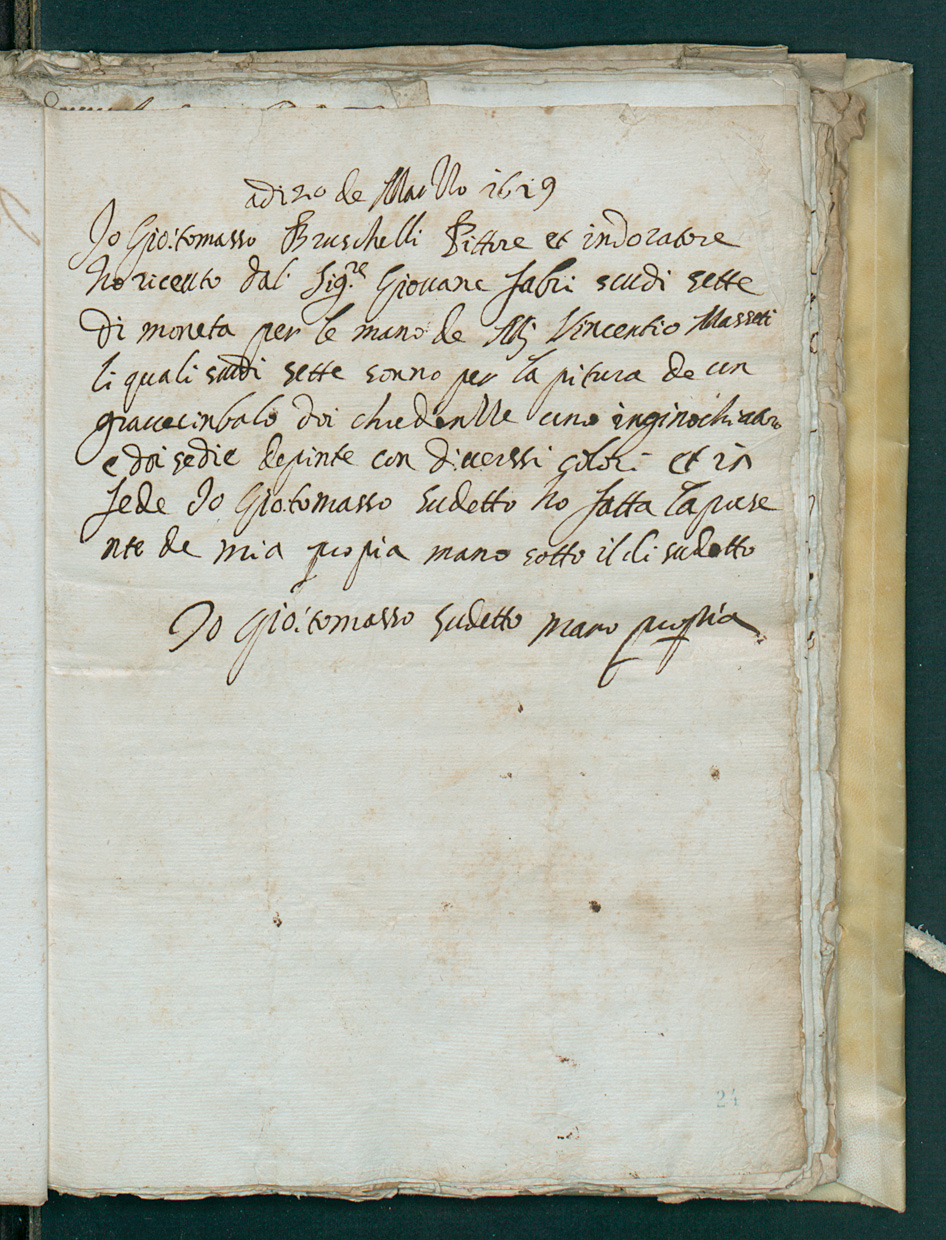 adi 20 de Marzo 1619
Io Gio: tomasso Bruschelli Pittore et indoratore
ho riceuto dal Sig.re Giouane fabri scudi sette
di moneta per le mano de Mj Vincentio Masseti
li quali scudi sette sonno per la pitura de un
grauecinbalo doi chredenzze uno inginochiator
e doi sedie depinte con diuerssi colori et in
fede Io Gio: tomasso sudetto ho fatta la prese
nte de mia propia mano sotto il di sudetto
Io Gio: tomasso sudetto mano propria
24